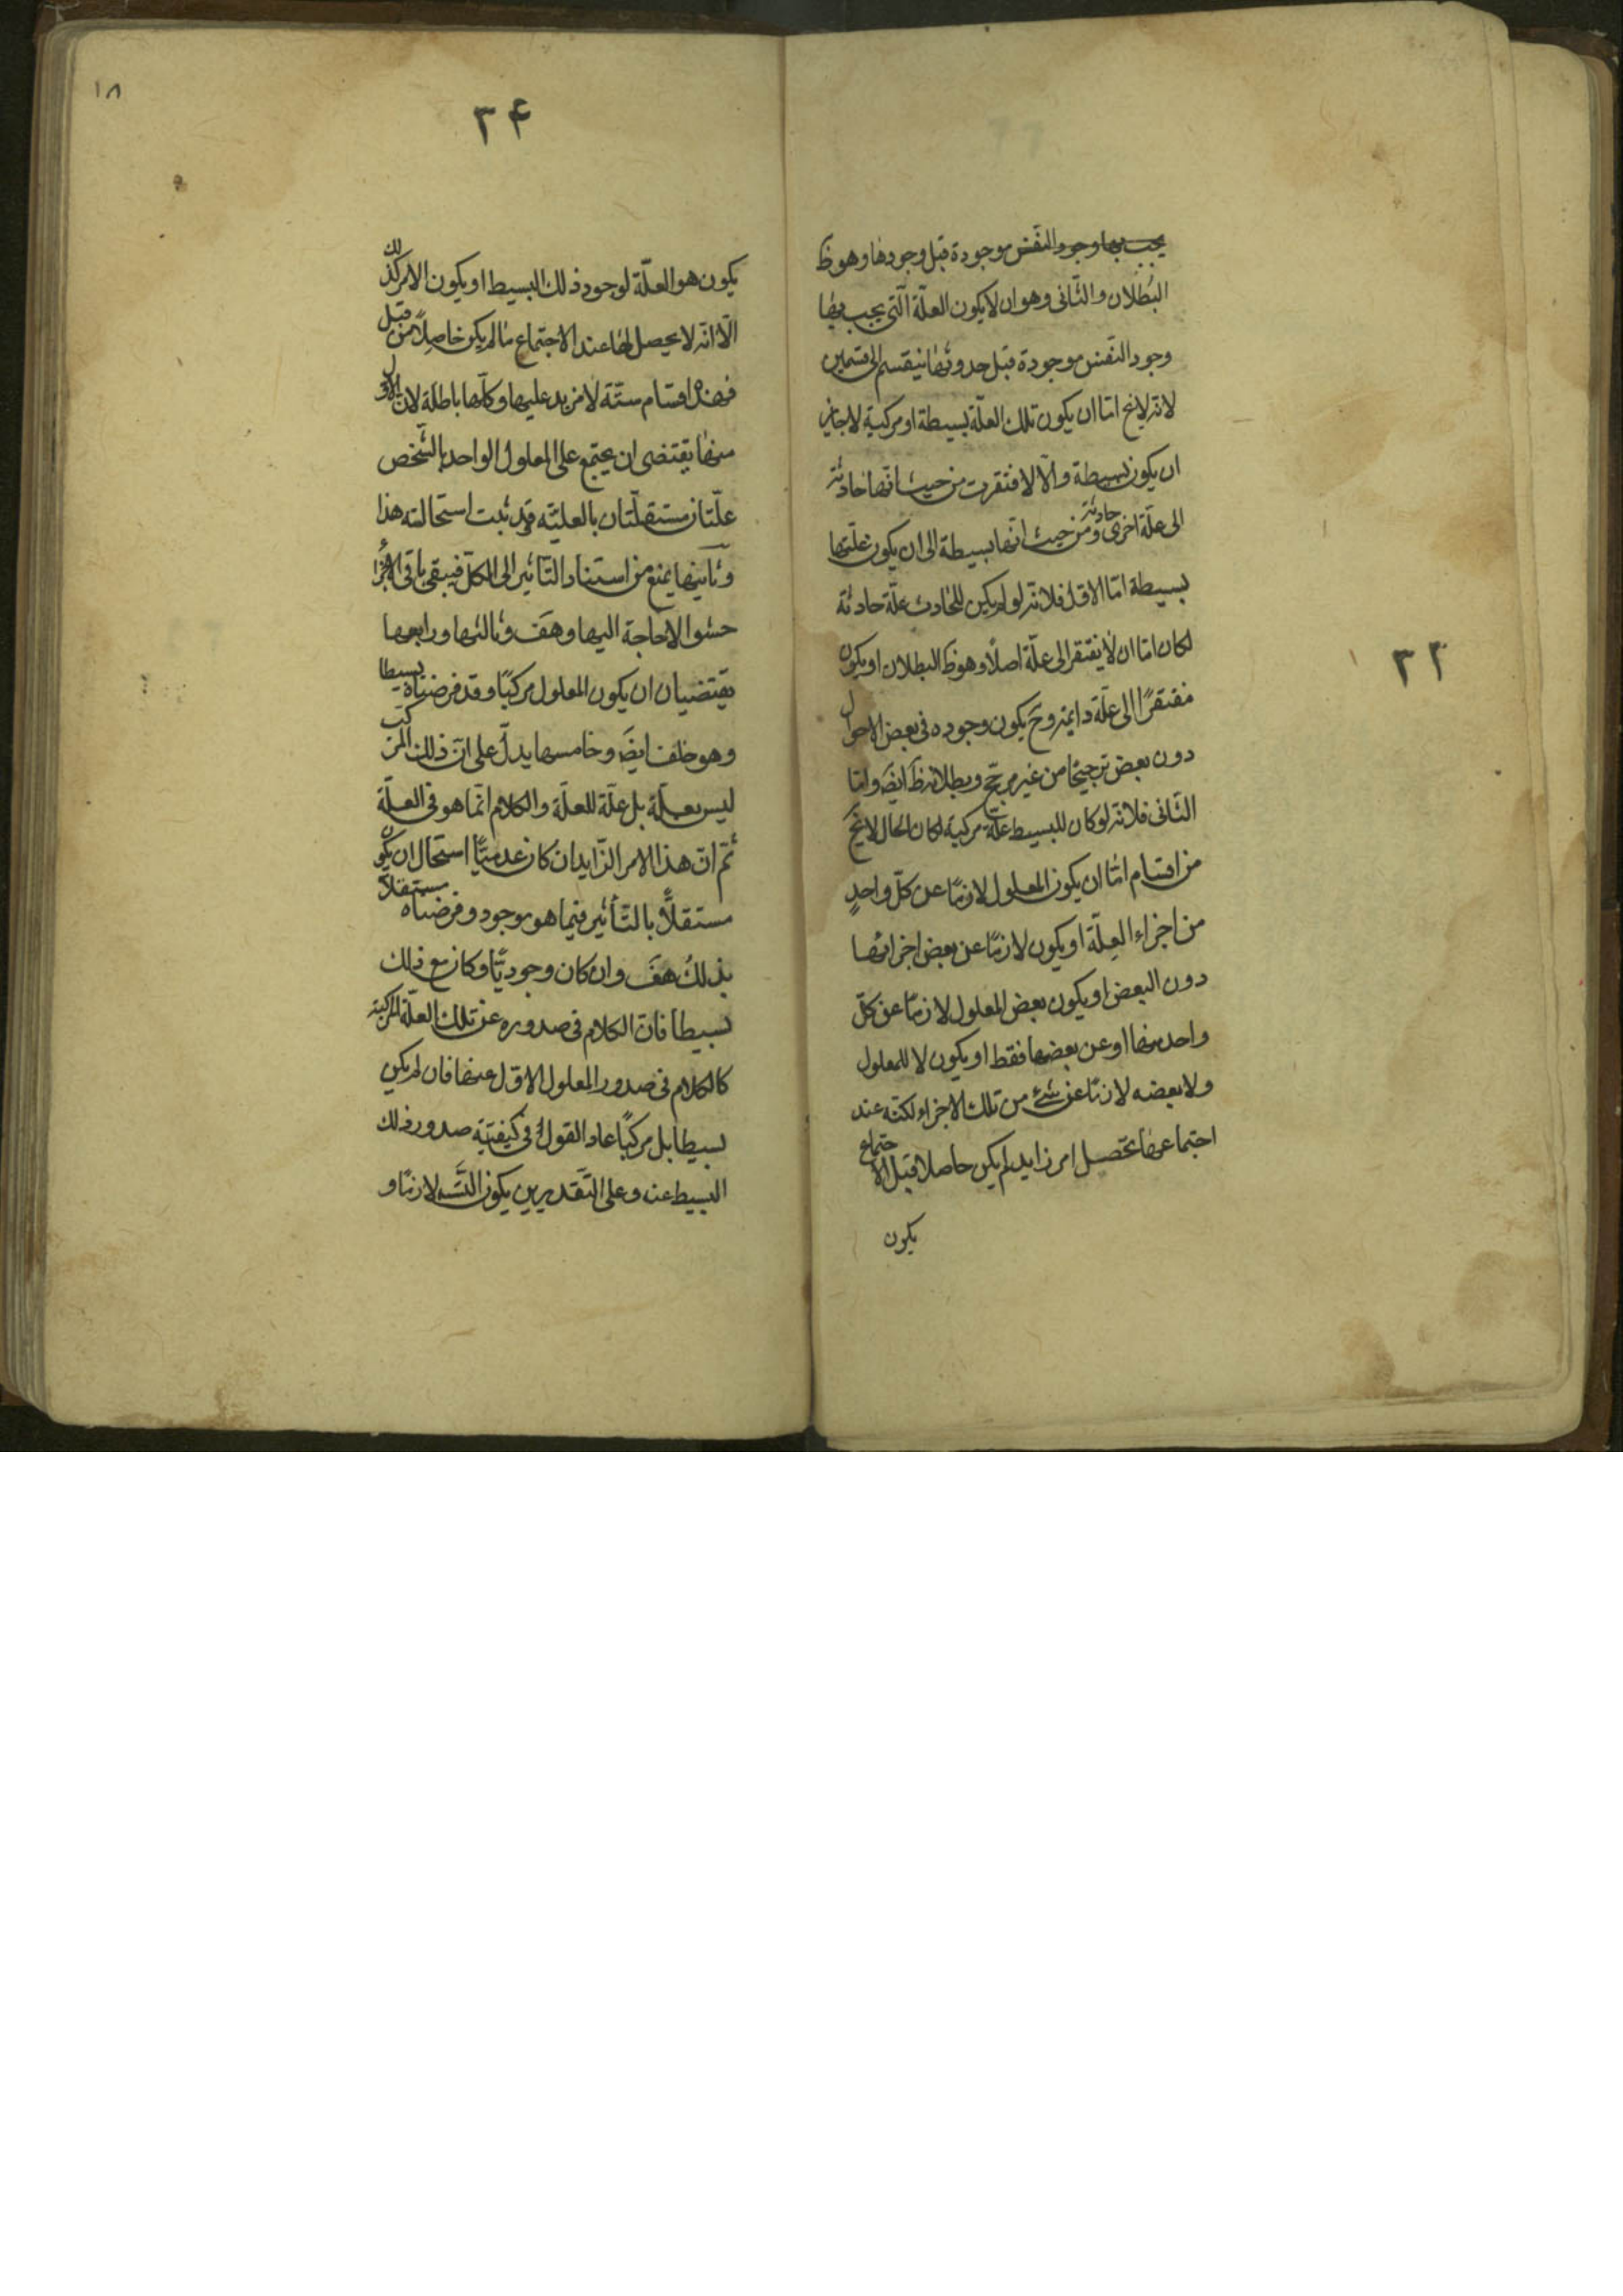 يجب بها وجود النفس موجودة قبل وجودها وهو ظ
البُطلان والثّانى وهو ان لا يكون العلّة الّتى يجب بها
وجود النّفس موجودة قبل حدوثها ينقسم الى قسمين
لانّه لايخ امّا ان يكون تلك العلّة بسيطة او مركبة لاجايز
ان يكون بسيطة والّا لافتقرت من حيث انّها حادثة
الى علّة اخرى حادثة ومن حيث انّها بسيطة الى ان يكون علّتها
بسيطة امّا الاوّل فلانّه لو لم يكن للحادث علّة حادثة
لكان امّا ان لا يفتقر الى علّة اصلًا وهو ظ البطلان او يكون
مفتقرًا الى علّة دايمة وحَ يكون وجوده فى بعض الاحوال
دون بعض ترجيحًا من غير مرجّح وبطلانه ظَ ايضَ وامّا
الثّانى فلانّه لو كان للبسيط علّة مركبة لكان الحال لايخَ
من اقسام امّا ان يكون المعلول لازمًا عن كلّ واحدٍ
من اجزاء العلّة او يكون لازمًا عن بعض اجزائها
دون البعض او يكون بعض المعلول لازمًا عن كلّ
واحد منها او عن بعضها فقط او يكون لا المعلول
ولا بعضه لازمًا عن شئ من تلك الاجزاء لكنّه عند
اجتماعها تحصل امر زايد لم يكن حاصلا قبل الاجتماع
يكون
٣٣
١٨
٣۴
يكون هو العلّة لوجود ذلك البسيط او يكون الامر كذلك
الّا انّه لا يحصل لها عند الاجتماع ما لم يكن حاصِلًا من قبل
فهذه اقسام ستّة لا مزيد عليها وكلّها باطلة لان الاوّل
منها يقتضى ان يجتمع على المعلول الواحد بالشّخص
علّتان مستقلّتان بالعليّة وقد ثبت استحالته هذا
وثانيها يمنع من استناد التّأثير الى الكلّ فيبقى باقى الاجزاء
حشوا لا حاجة اليها وهف وثالثها ورابعها
يقتضيان ان يكون المعلول مركبًا وقد فرضناه بسيطا
وهو خلف ايضَ وخامسها يدلّ على انّ ذلك المركب
ليس بعلّة بل علّة للعلّة والكلام انّما هو فى العلّة
ثمّ انّ هذا الامر الزّايد ان كان عدميًّا استحال ان يكون
مستقلًّا بالتّأثير فيما هو موجود وفرضناه مستقلًا
بذلك هفَ وان كان وجوديًّا وكان مع ذلك
بسيطا فانّ الكلام فى صدوره عن تلك العلّة المركبة
كالكلام فى صدور المعلول الاوّل عنها فان لم يكن
بسيطا بل مركبًا عاد القول فى كيفيّة صدور ذلك
البسيط عنه وعلى التّقديرين يكون التّسَ لازمًا و